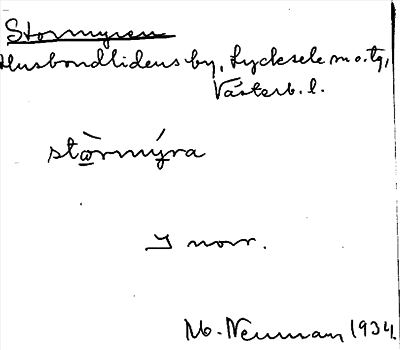 Stormyren
Husbondlidens by, Lycksele m. o. tg,
Västerb. l.
stòrmýra
I norr.
M. Neuman 1934.